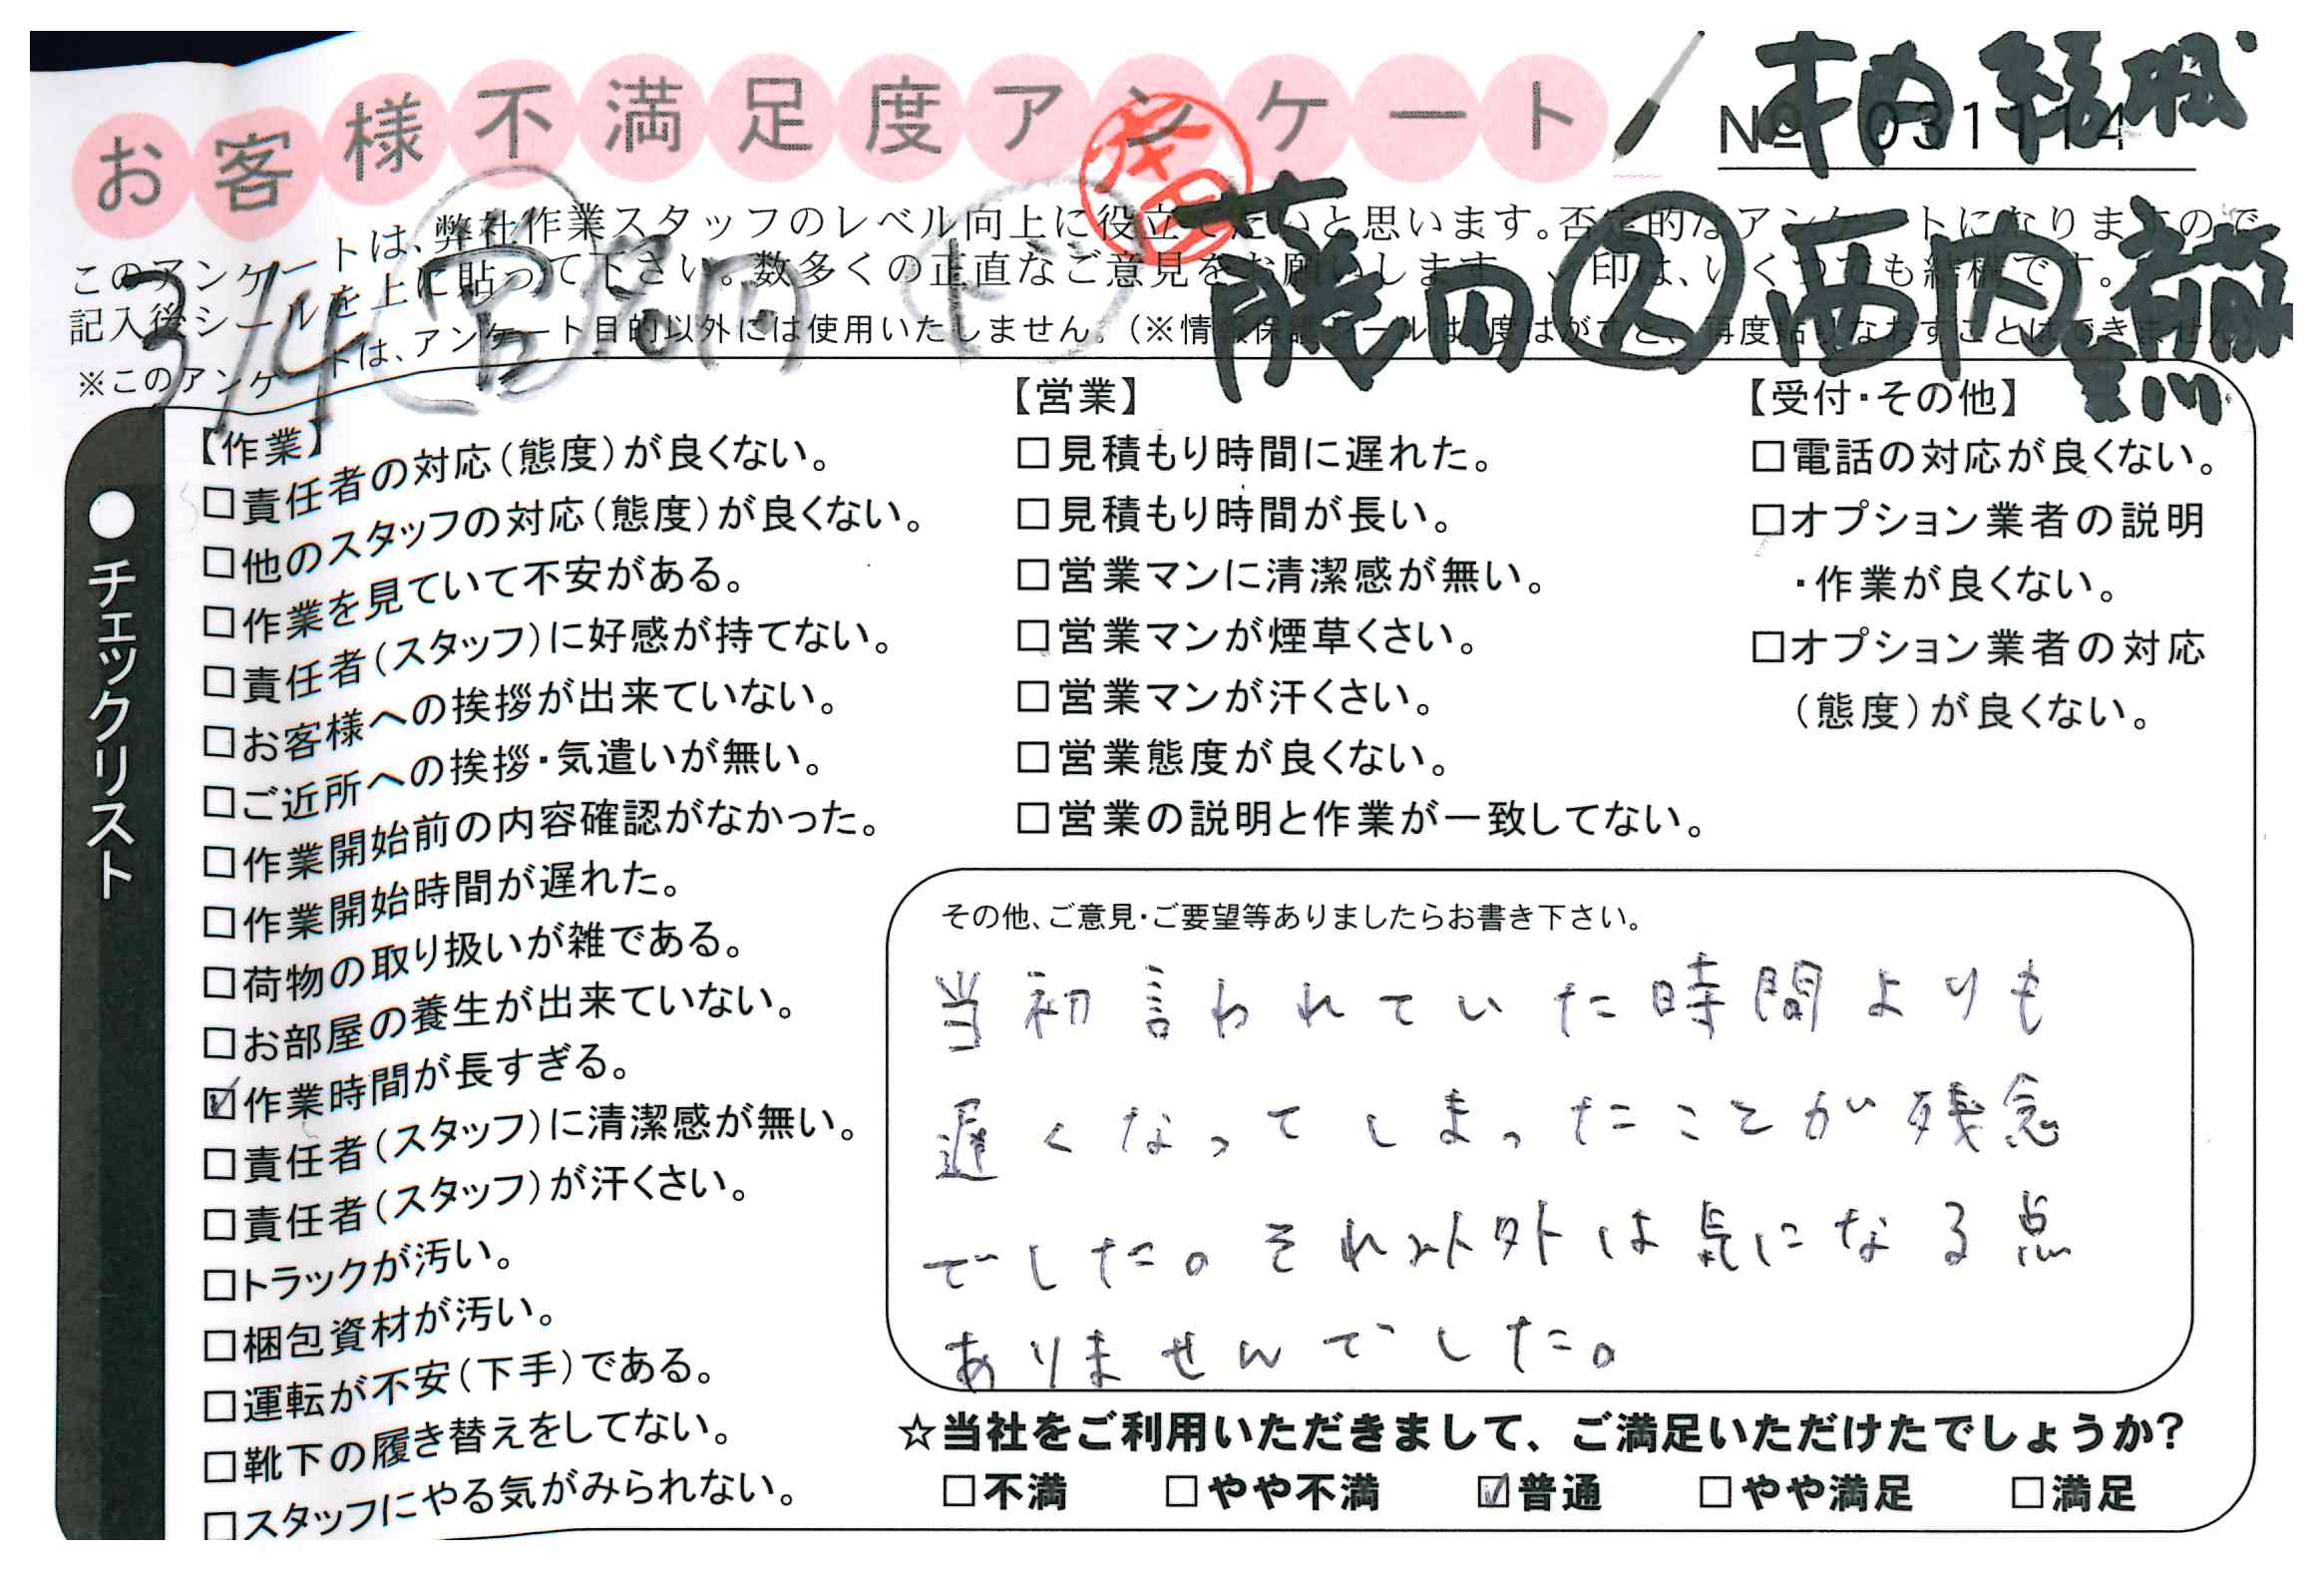 お客様不満足度アンケート
№ 031114
このアンケートは、弊社作業スタッフのレベル向上に役立てたいと思います。否定的なアンケートになりますので
記入後シールを上に貼って下さい。数多くの正直なご意見をお願いします。✓印は、いくつでも結構です。
※このアンケートは、アンケート目的以外には使用いたしません。(※情報保護シールは1度はがすと、再度貼りなおすことはできません)
3/4
藤田②西内
●チェックリスト
【作業】
□責任者の対応(態度)が良くない。
□他のスタッフの対応(態度)が良くない。
□作業を見ていて不安がある。
□責任者(スタッフ)に好感が持てない。
□お客様への挨拶が出来ていない。
□ご近所への挨拶・気遣いが無い。
□作業開始前の内容確認がなかった。
□作業開始時間が遅れた。
□荷物の取り扱いが雑である。
□お部屋の養生が出来ていない。
☑作業時間が長すぎる。
□責任者(スタッフ)に清潔感が無い。
□責任者(スタッフ)が汗くさい。
□トラックが汚い。
□梱包資材が汚い。
□運転が不安(下手)である。
□靴下の履き替えをしてない。
□スタッフにやる気がみられない。
【営業】
□見積もり時間に遅れた。
□見積もり時間が長い。
□営業マンに清潔感が無い。
□営業マンが煙草くさい。
□営業マンが汗くさい。
□営業態度が良くない。
□営業の説明と作業が一致してない。
【受付・その他】
□電話の対応が良くない。
□オプション業者の説明
・作業が良くない。
□オプション業者の対応
(態度)が良くない。
その他、ご意見・ご要望等ありましたらお書き下さい。
当初言われていた時間よりも
遅くなってしまったことが残念
でした。それ以外は気になる点
ありませんでした。
☆当社をご利用いただきまして、ご満足いただけたでしょうか?
□不満 □やや不満 ☑普通 □やや満足 □満足